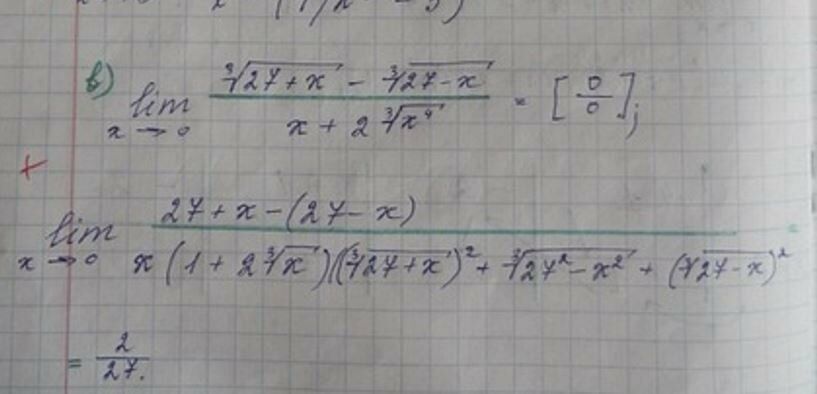 в) lim x → 0 (∛(27 + x) - ∛(27 - x)) / (x + 2∛(x⁴)) = [0/0];
+
lim x → 0 (27 + x - (27 - x)) / (x(1 + 2∛x)((∛(27 + x))² + ∛(27² - x²) + (∛(27 - x))² =
= 2/27.